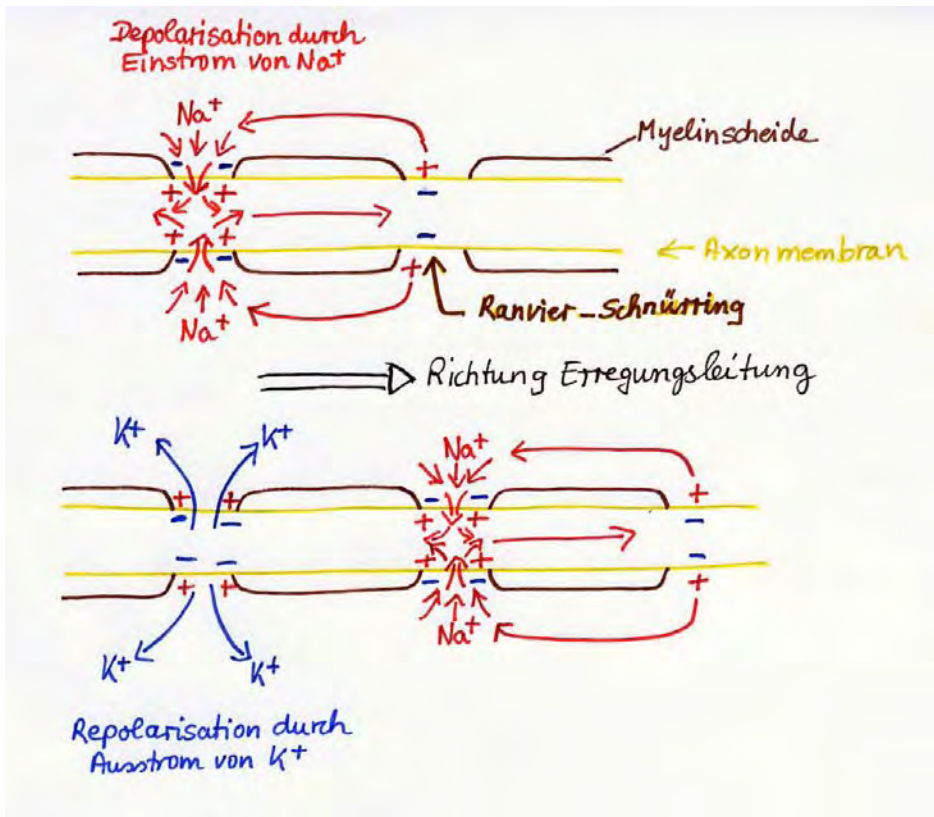 Depolarisation durch
Einstrom von Na+
Na+
Myelinscheide
Axonmembran
Ranvier-Schnürring
Na+
Richtung Erregungsleitung
K+
K+
Na+
Na+
K+
K+
Repolarisation durch
Ausstrom von K+